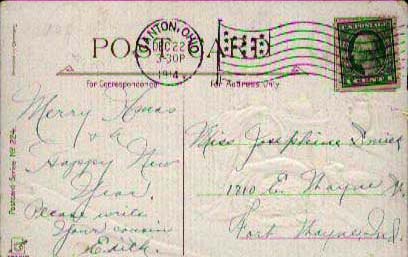 POST CARD
CANTON, OHIO
DEC 22
3-30P
1914
For Correspondence
For Address Only
Merry Xmas
& a
Happy New
Year.
Please write
Your cousin
Edith.
Miss Josephine
1710 E. Wayne St.
Fort Wayne, Ind.
Postcard Series No 224